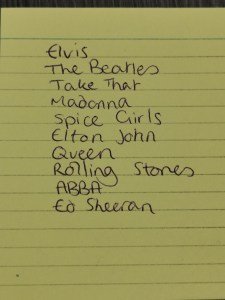 Elvis
The Beatles
Take That
Madonna
Spice Girls
Elton John
Queen
Rolling Stones
ABBA
Ed Sheeran